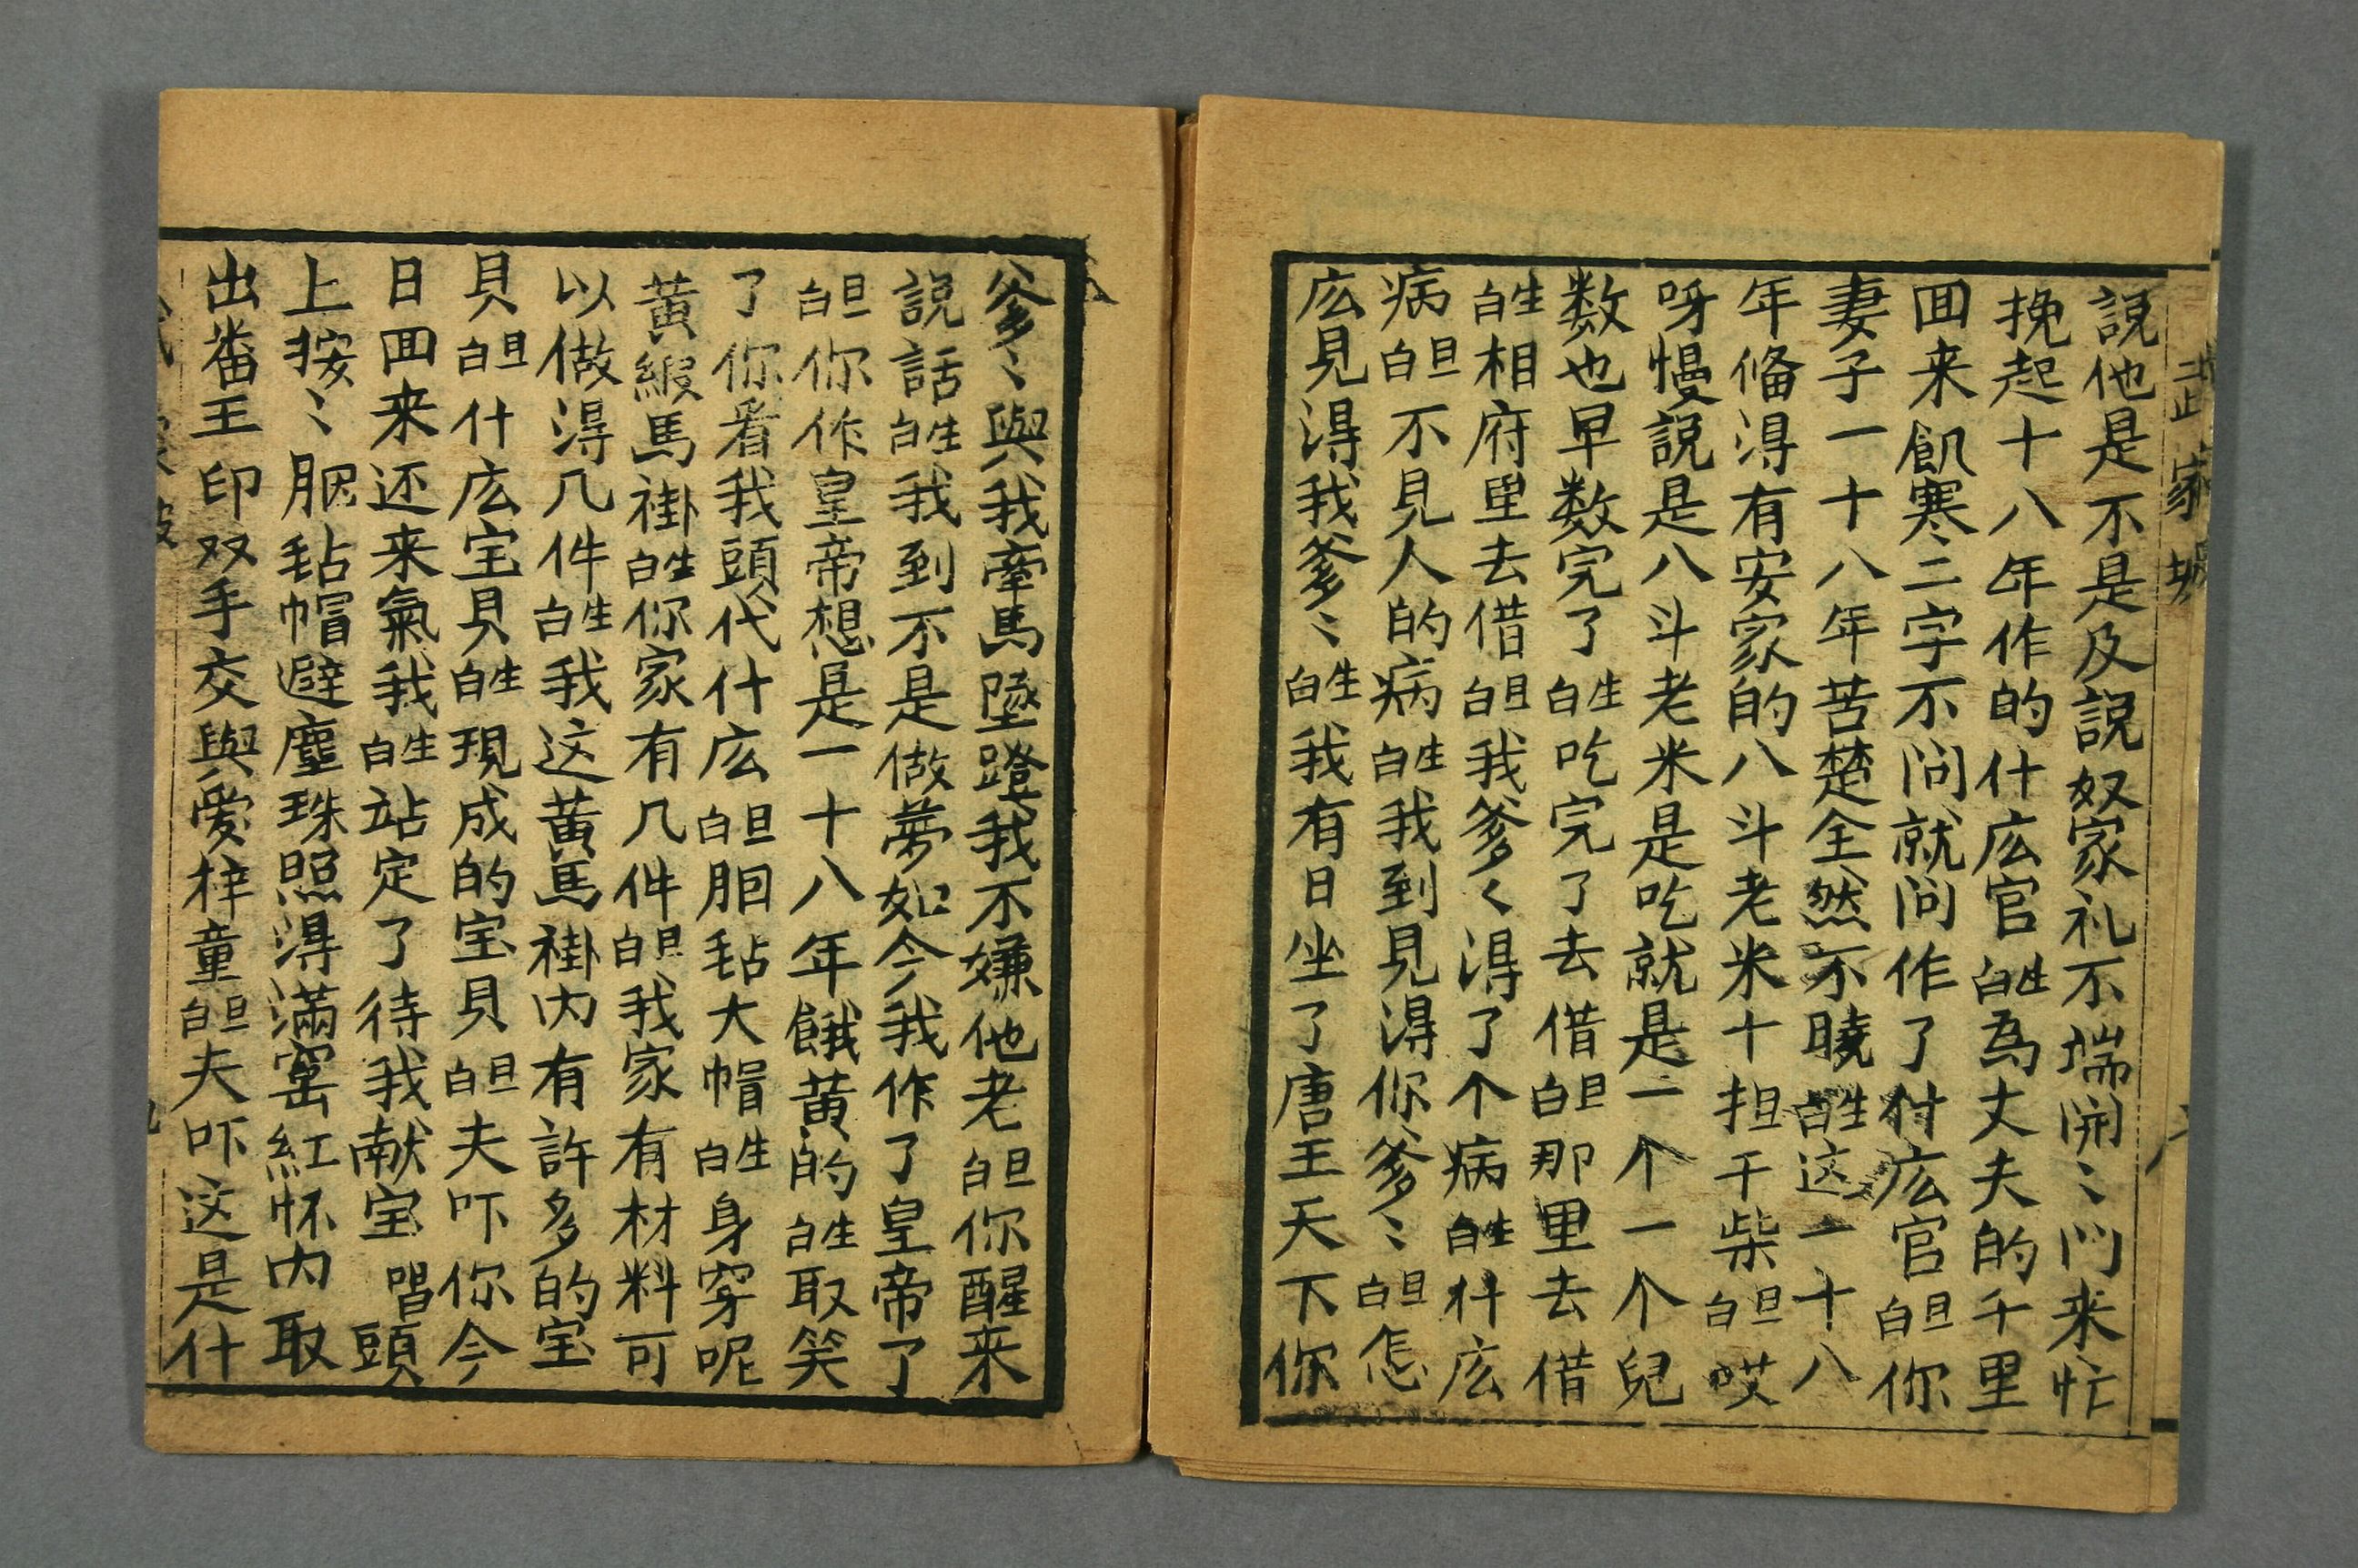 武家坡
說他是不是及說奴家礼不端開〻门来忙
挽起十八年作的什庅官生白為丈夫的千里
回来飢寒二字不问就问作了什庅官旦白你
妻子一十八年苦楚全然不曉生白这一十八
年俻淂有安家的八斗老米十担干柴旦白哎
呀慢說是八斗老米是吃就是一个一个兒
数也早数完了生白吃完了去借旦白那里去借
生白相府里去借旦白我爹〻淂了个病生白什庅
病旦白不見人的病生白我到見淂你爹〻旦白怎
庅見淂我爹〻生白我有日坐了唐王天下你
爹〻與我牽馬墜蹬我不嫌他老旦白你醒来
說話生白我到不是做夢如今我作了皇帝了
旦白你作皇帝想是一十八年餓黄的生白取笑
了你看我頭代什庅旦白胭毡大帽生白身穿呢
黃緞馬褂生白你家有几件旦白我家有材料可
以做淂几件生白我这黄馬褂内有許多的宝
貝旦白什庅宝貝生白現成的宝貝旦白夫吓你今
日回来还来氣我生白站定了待我献宝唱頭
上按〻胭毡帽避塵珠照淂滿窰紅怀内取
出番王印双手交與爱梓童旦白夫吓这是什